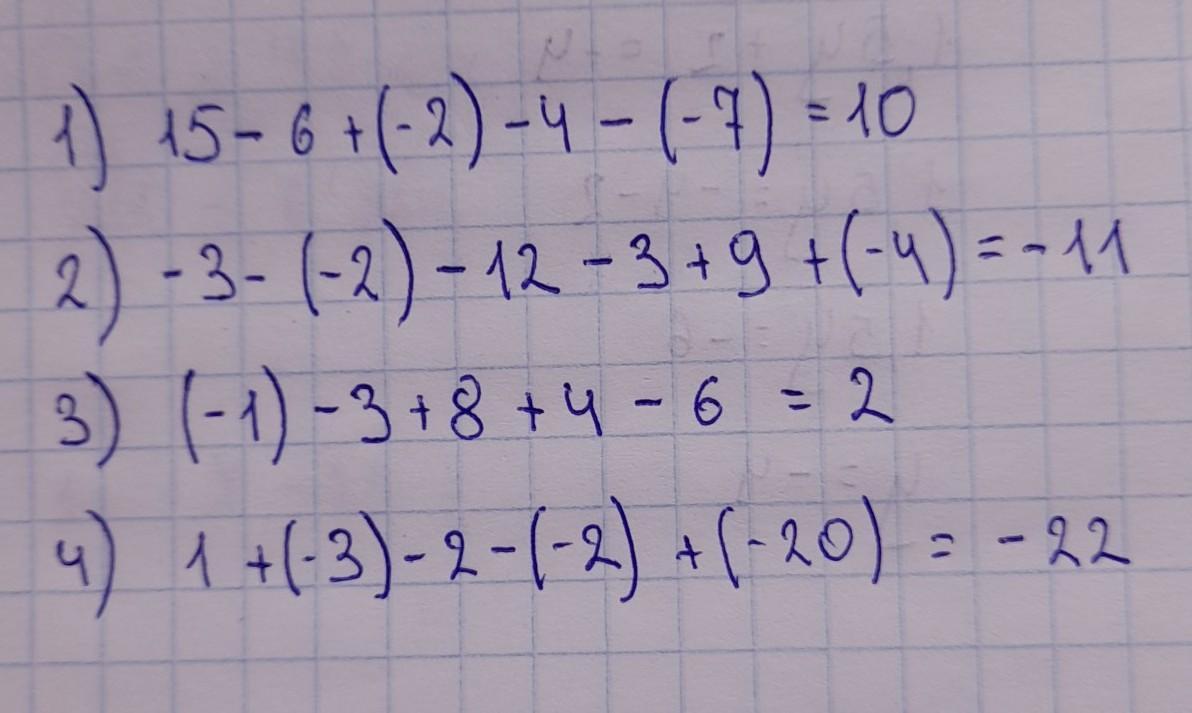 1) 15 - 6 + (-2) - 4 - (-7) = 10
2) -3 - (-2) - 12 - 3 + 9 + (-4) = -11
3) (-1) - 3 + 8 + 4 - 6 = 2
4) 1 + (-3) - 2 - (-2) + (-20) = -22